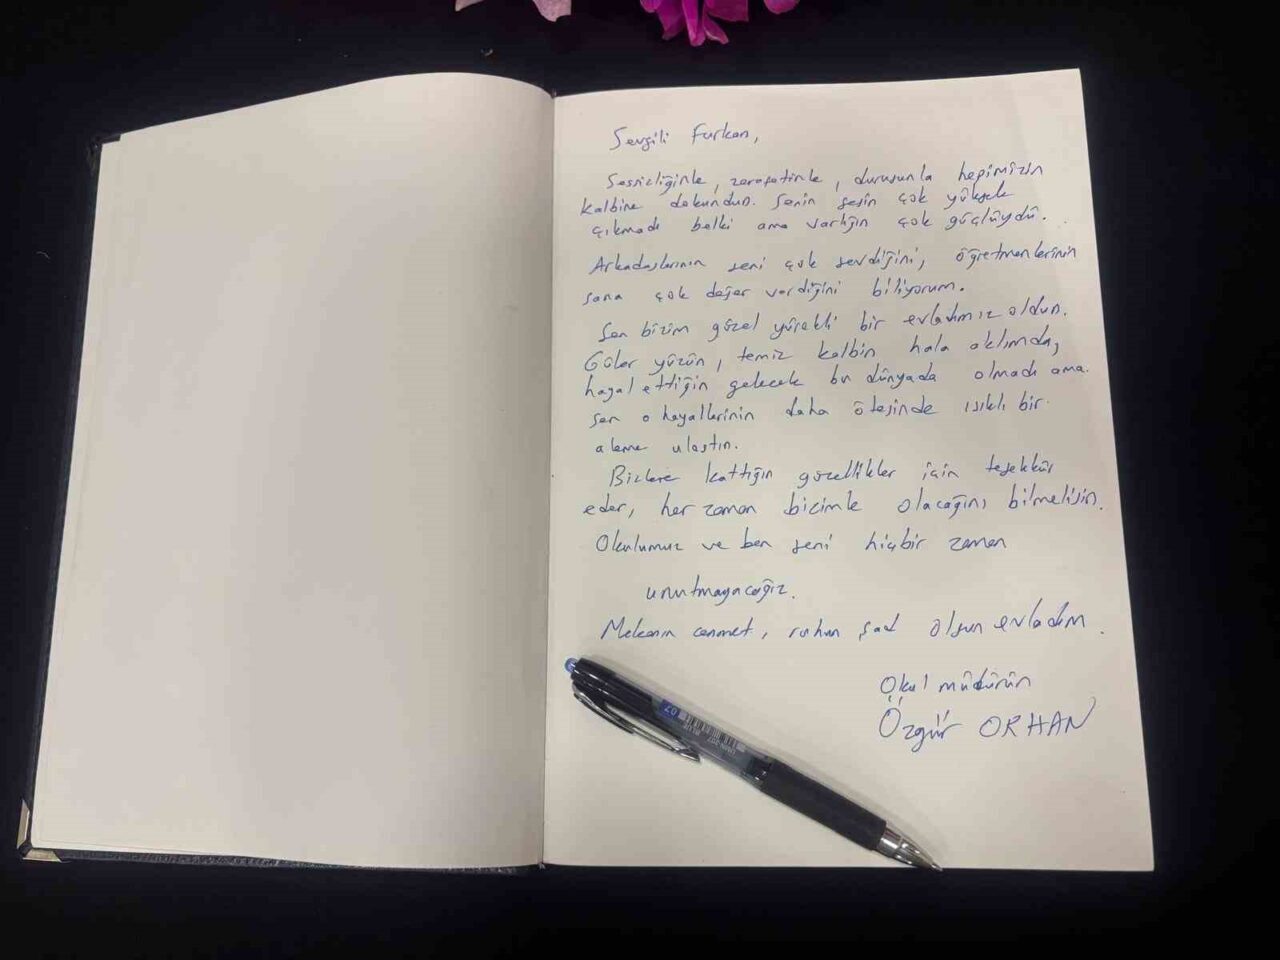 Sevgili Furkan,
Sessizliğinle, zarafetinle, duruşunla hepimizin
kalbine dokundun. Senin sesin çok yüksek
çıkmadı belki ama varlığın çok güçlüydü.
Arkadaşlarının seni çok sevdiğini, öğretmenlerinin
sana çok değer verdiğini biliyorum.
Sen bizim güzel yürekli bir evladımız oldun.
Güler yüzün, temiz kalbin hala aklımda,
hayal ettiğin gelecek bu dünyada olmadı ama.
sen o hayallerinin daha ötesinde ışıklı bir
aleme ulaştın.
Bizlere kattığın güzellikler için teşekkür
eder, her zaman bizimle olacağını bilmelisin.
Okulumuz ve ben seni hiçbir zaman
unutmayacağız.
Mekanın cennet, ruhun şad olsun evladım.
Okul müdürün
Özgür ORHAN
0.7